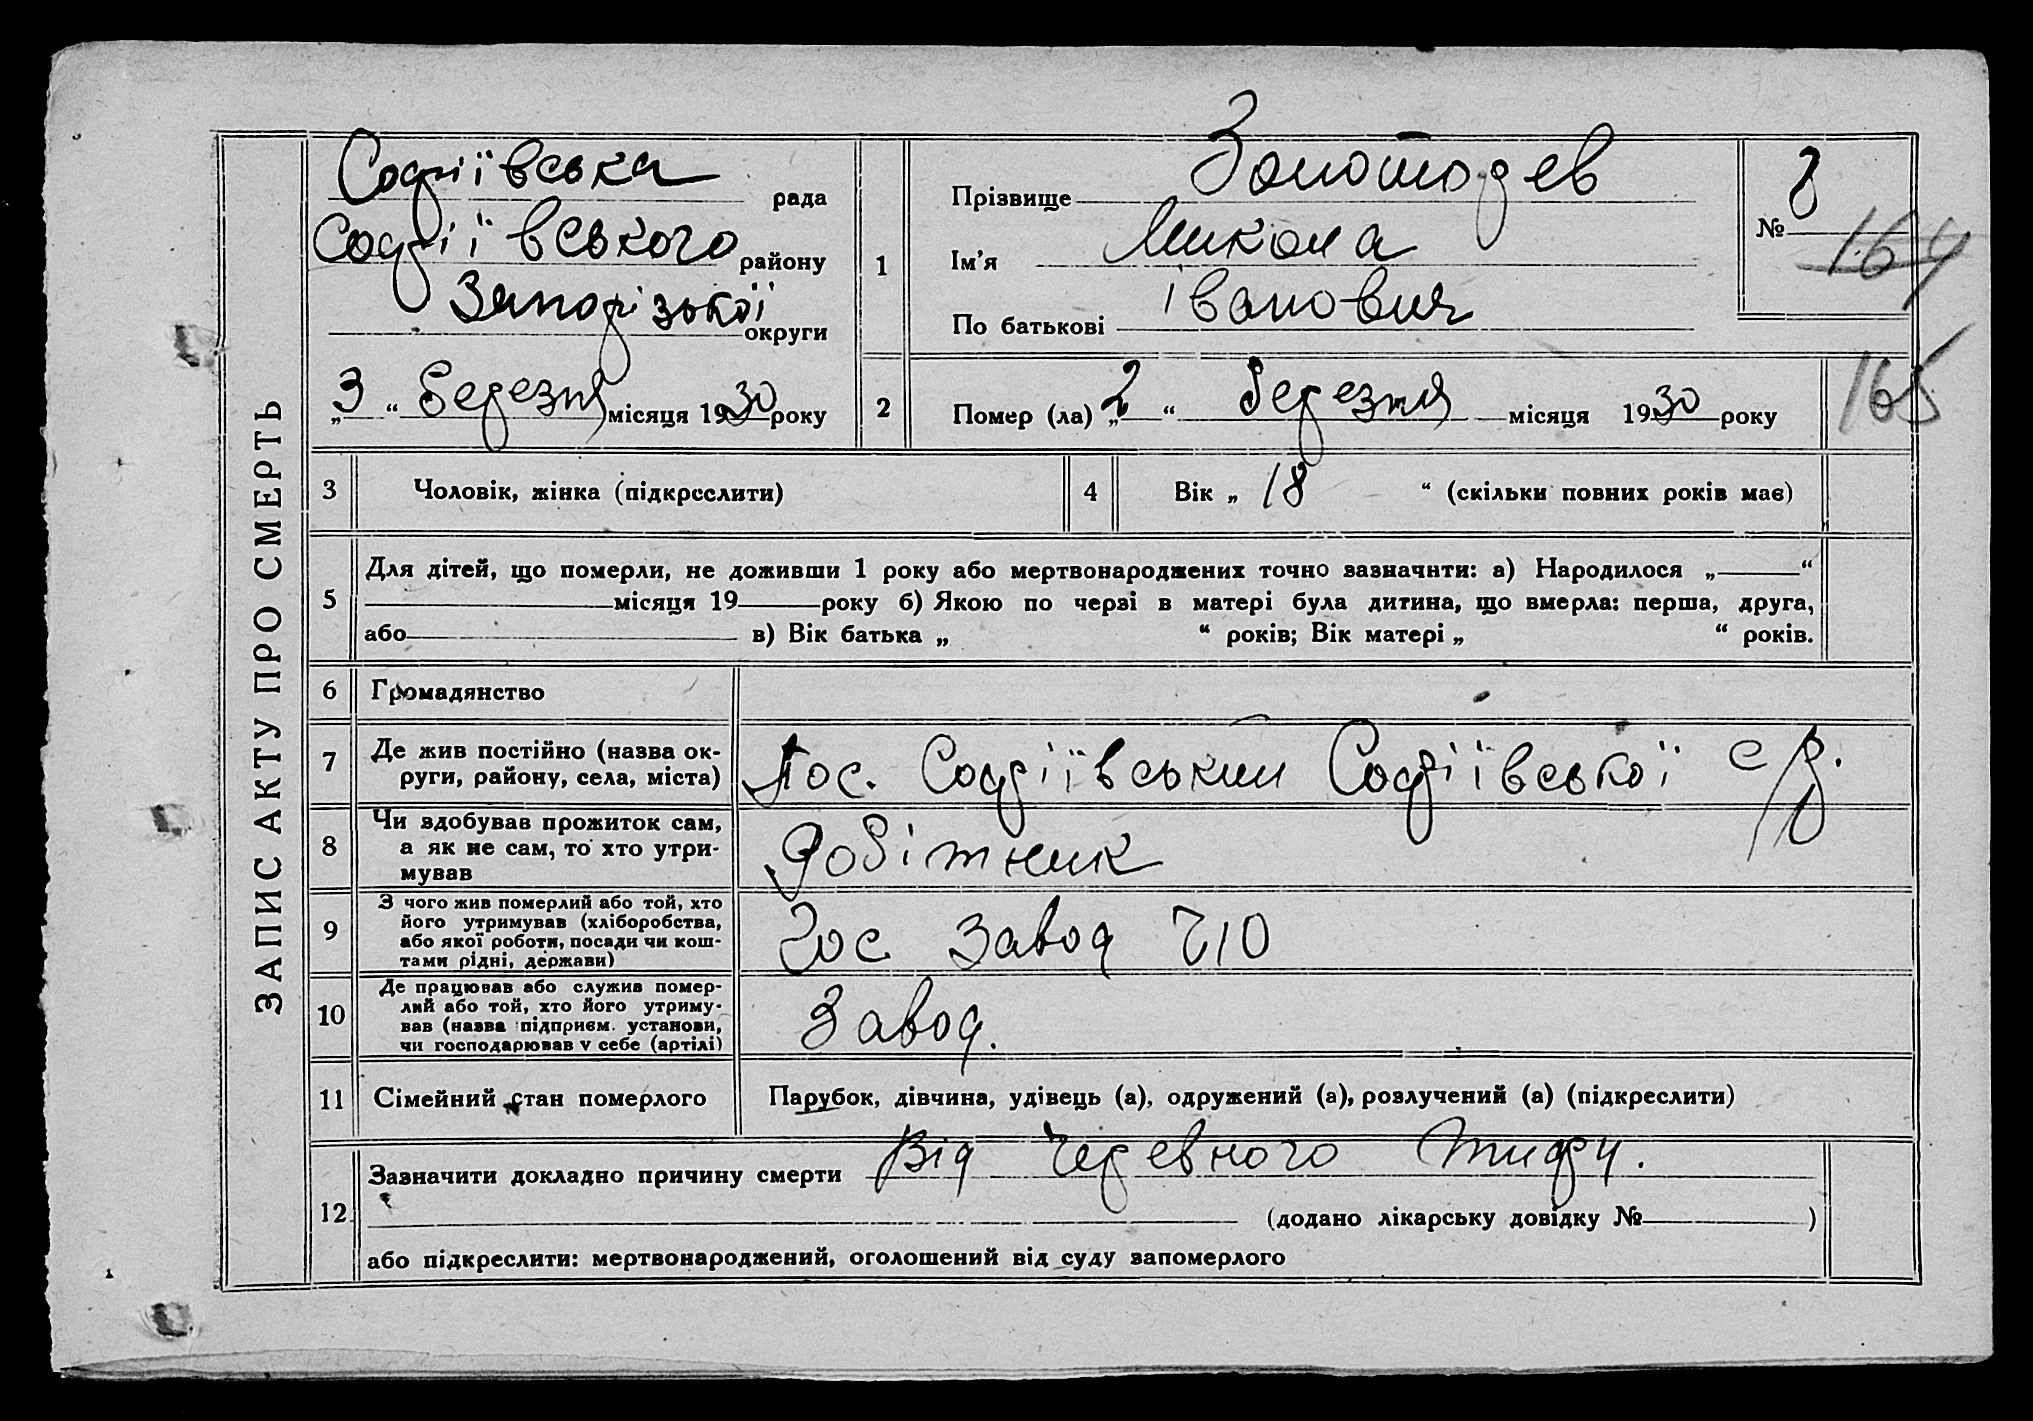 ЗАПИС АКТУ ПРО СМЕРТЬ
Софіївська рада
Софіївського району
Запорізької округи
„3“ березня місяця 1930 року
1
Прізвище Золотодев
Ім'я Микола
По батькові Іванович
№ 8
164
165
2 Помер (ла) „2“ березня місяця 1930 року
3 Чоловік, жінка (підкреслити)
4 Вік „18“ (скільки повних років має)
5 Для дітей, що померли, не доживши 1 року або мертвонароджених точно зазначити: а) Народилося „ “
місяця 19 року б) Якою по черзі в матері була дитина, що вмерла: перша, друга,
або в) Вік батька „ “ років; Вік матері „ “ років.
6 Громадянство
7 Де жив постійно (назва ок-
руги, району, села, міста)
Пос. Софіївський Софіївської с/р.
8 Чи здобував прожиток сам,
а як не сам, то хто утри-
мував
робітник
9 З чого жив померлий або той, хто
його утримував (хліборобства,
або якої роботи, посади чи кош-
тами рідні, держави)
Гос завод
10 Де працював або служив помер-
лий або той, хто його утриму-
вав (назва підприєм. установи,
чи господарював у себе (артілі)
Завод.
11 Сімейний стан померлого
Парубок, дівчина, удівець (а), одружений (а), розлучений (а) (підкреслити)
12 Зазначити докладно причину смерти Від черевного тифу.
(додано лікарську довідку № )
або підкреслити: мертвонароджений, оголошений від суду запомерлого